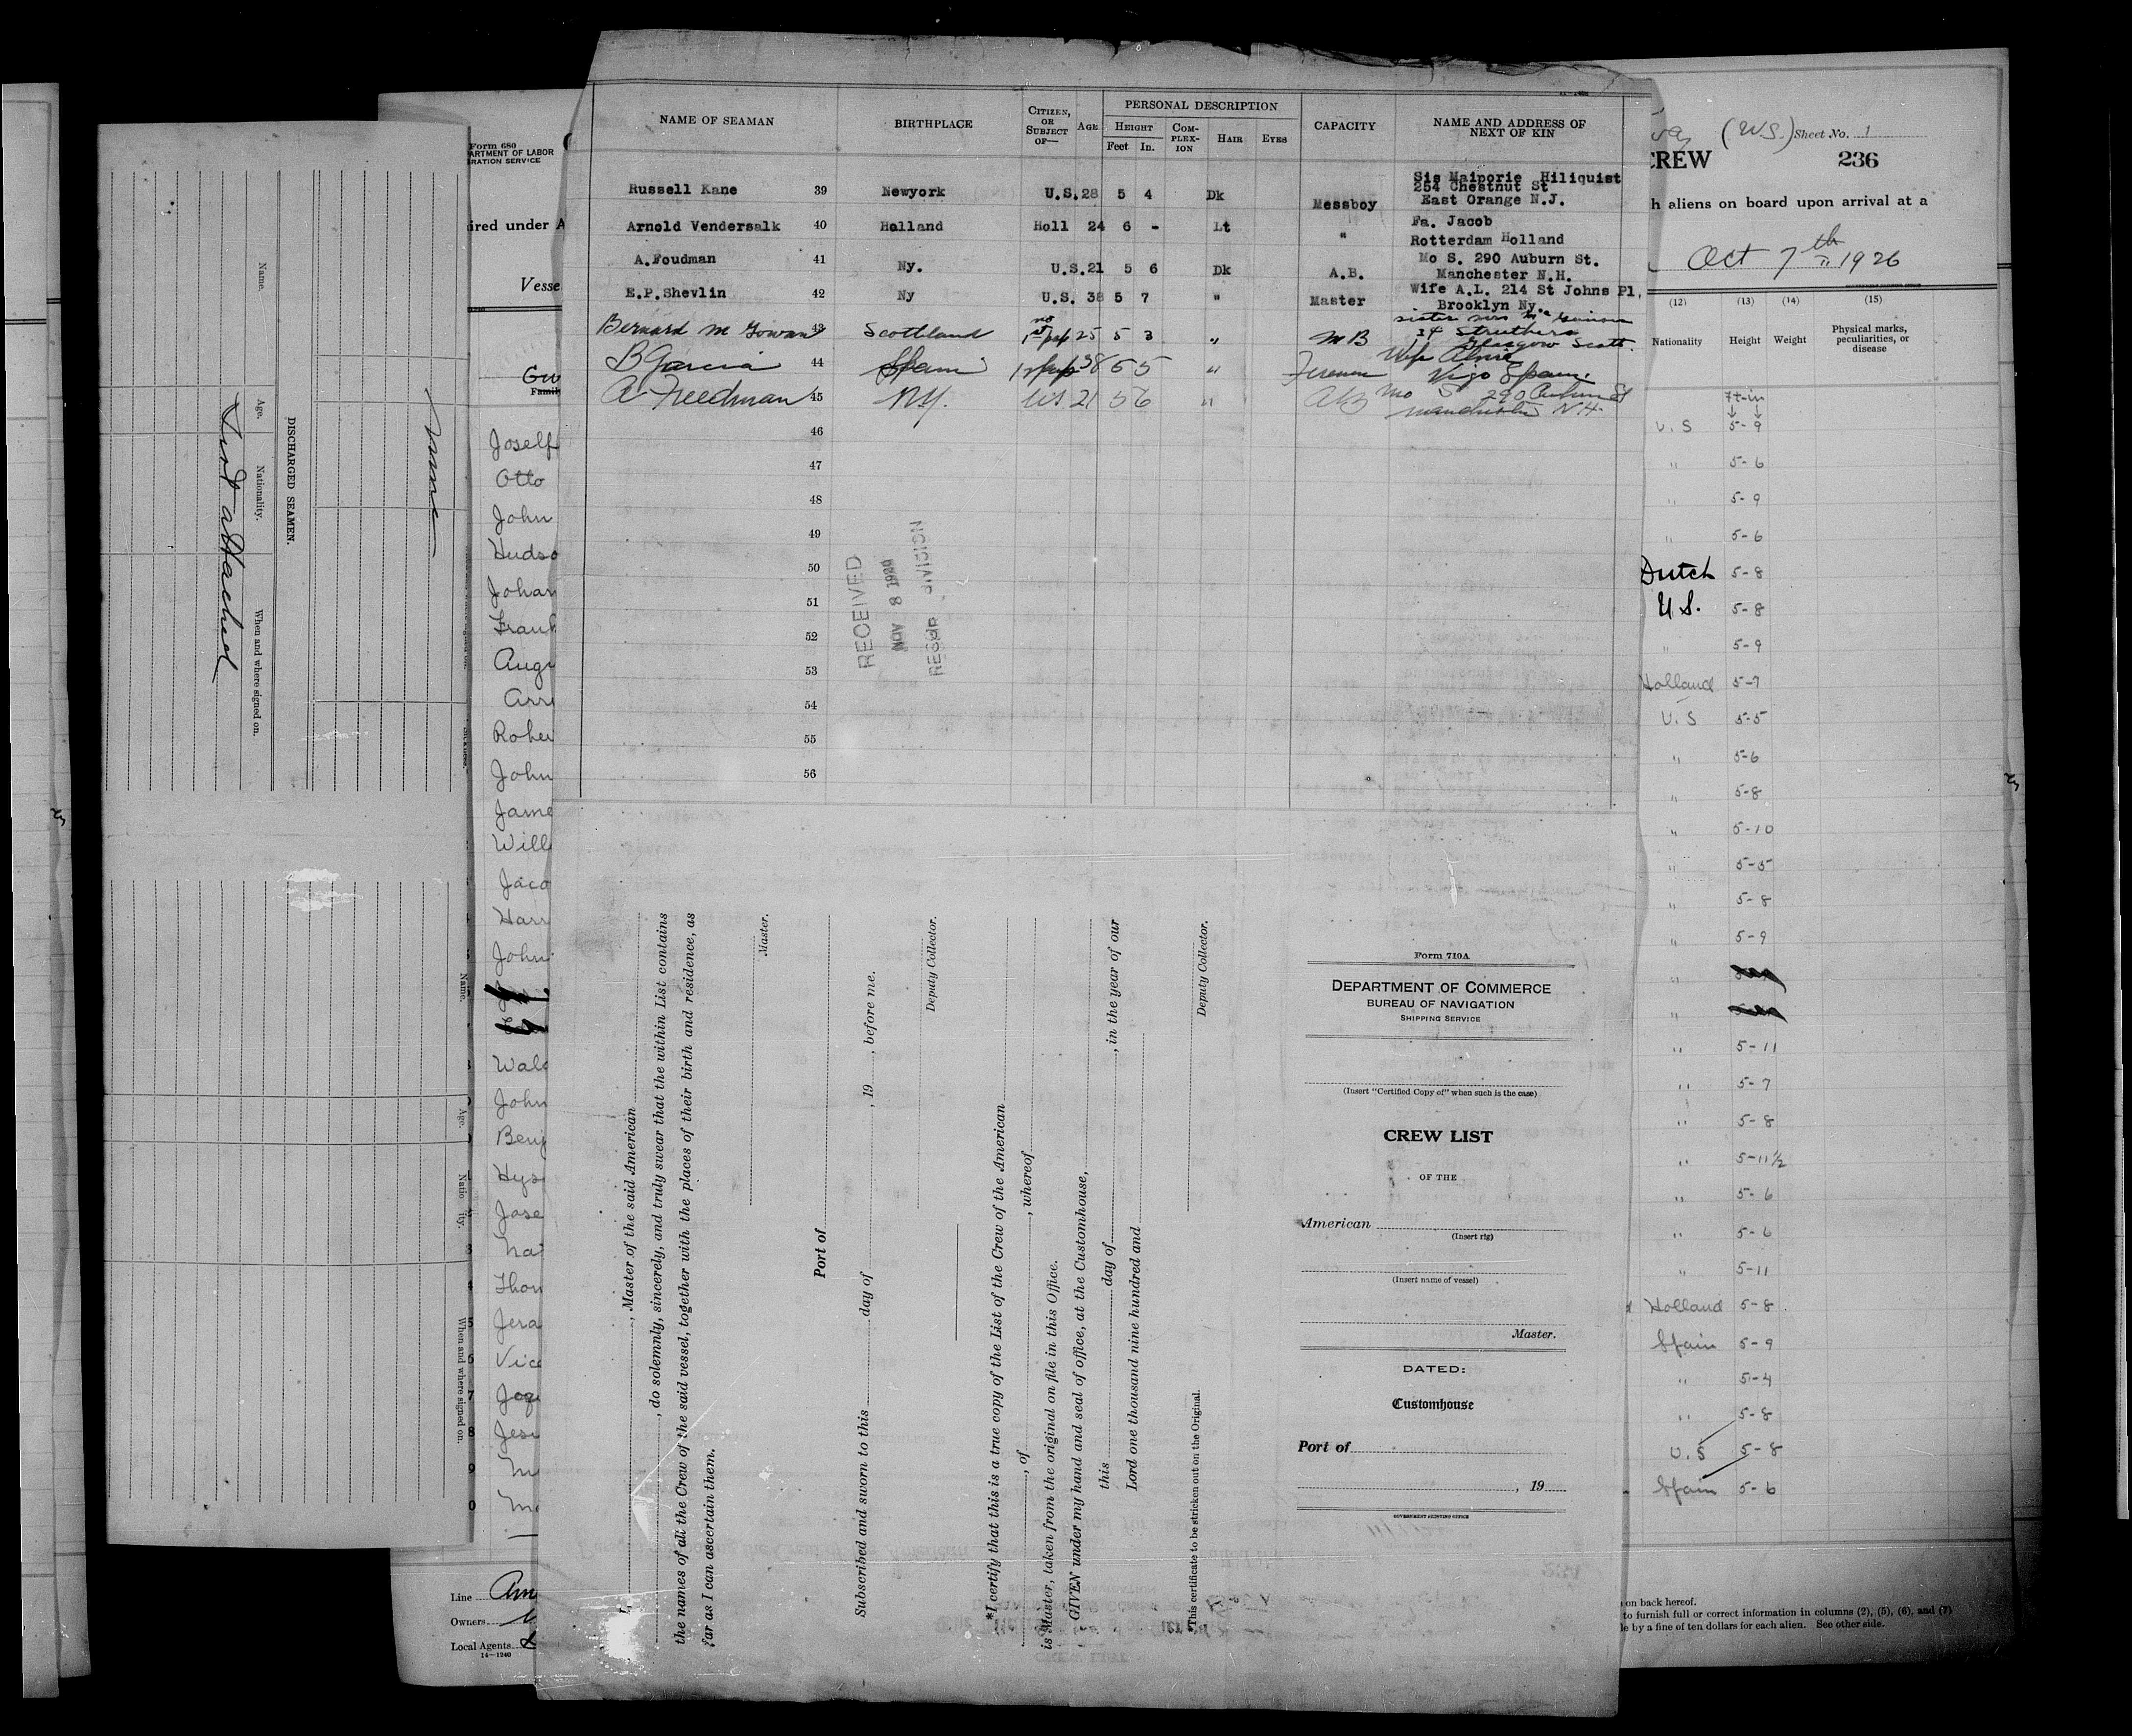 NAME OF SEAMAN BIRTHPLACE CITIZEN, OR SUBJECT OF— AGE PERSONAL DESCRIPTION CAPACITY NAME AND ADDRESS OF NEXT OF KIN
HEIGHT COM-PLEX-ION HAIR EYES
Feet In.
Russell Kane 39 Newyork U.S. 28 5 4 Dk Messboy Sis Maiporie Hiliquist
254 Chestnut St
East Orange N.J.
Arnold Vendersalk 40 Holland Holl 24 6 - Lt " Fa. Jacob
Rotterdam Holland
A.Foudman 41 Ny. U.S. 21 5 6 Dk A.B. Mo S. 290 Auburn St.
Manchester N.H.
E.P.Shevlin 42 Ny U.S. 38 5 7 " Master Wife A.L. 214 St Johns Pl,
Brooklyn Ny
Bernard Mc Gowan 43 Scottland 25 5 3 " M B sister mrs
14 Struthers
Glasgow Scott.
B Garcia 44 Spain 38 5 5 " Fireman Wife
Vigo Spain.
A Freedman 45 N.Y. US 21 5 6 " AB Mo S 290 Auburn St
Manchester N.H.
46
47
48
49
50
51
52
53
54
55
56
RECEIVED
NOV 8
DIVISION
I, , Master of the said American
, do solemnly, sincerely, and truly swear that the within List contains
the names of all the Crew of the said vessel, together with the places of their birth and residence, as
far as I can ascertain them.
Master.
Port of
Subscribed and sworn to this day of , 19 , before me.
Deputy Collector.
*I certify that this is a true copy of the List of the Crew of the American
, of , whereof
is Master, taken from the original on file in this Office.
GIVEN under my hand and seal of office, at the Customhouse,
this day of , in the year of our
Lord one thousand nine hundred and
Deputy Collector.
*This certificate to be stricken out on the Original.
Form 710A
DEPARTMENT OF COMMERCE
BUREAU OF NAVIGATION
SHIPPING SERVICE
(Insert "Certified Copy of" when such is the case)
CREW LIST
OF THE
American
(Insert rig)
(Insert name of vessel)
Master.
DATED:
Customhouse
Port of
, 19
GOVERNMENT PRINTING OFFICE
Form 680
ARTMENT OF LABOR
RATION SERVICE
ired under A
Vesse
Gw
Family
Joself
Otto
John
Hudso
Johan
Frank
Augu
Arr
Rober
John
Jame
Will
Jaco
Harr
John
Wald
John
Benj
Hys
Jose
Nat
Thom
Jera
Vice
Joge
Jesu
Line Am
Owners
Local Agents
14—1240
DISCHARGED SEAMEN.
Name. Age. Nationality. When and where signed on.
List attached
None
Name. Age. Natio ity. When and where signed on.
(W.S.) Sheet No. 1
CREW 236
h aliens on board upon arrival at a
Oct 7th 1926
(12) (13) (14) (15)
Nationality Height Weight Physical marks, peculiarities, or disease
ft-in
U.S 5-9
" 5-6
" 5-9
" 5-6
Dutch 5-8
U.S. 5-8
" 5-9
Holland 5-7
U.S 5-5
" 5-6
" 5-8
" 5-10
" 5-5
" 5-8
" 5-9
"
"
" 5-11
" 5-7
" 5-8
" 5-11½
" 5-6
" 5-6
" 5-11
Holland 5-8
Spain 5-9
" 5-4
" 5-8
U.S 5-8
Spain 5-6
on back hereof.
to furnish full or correct information in columns (2), (5), (6), and (7)
le by a fine of ten dollars for each alien. See other side.